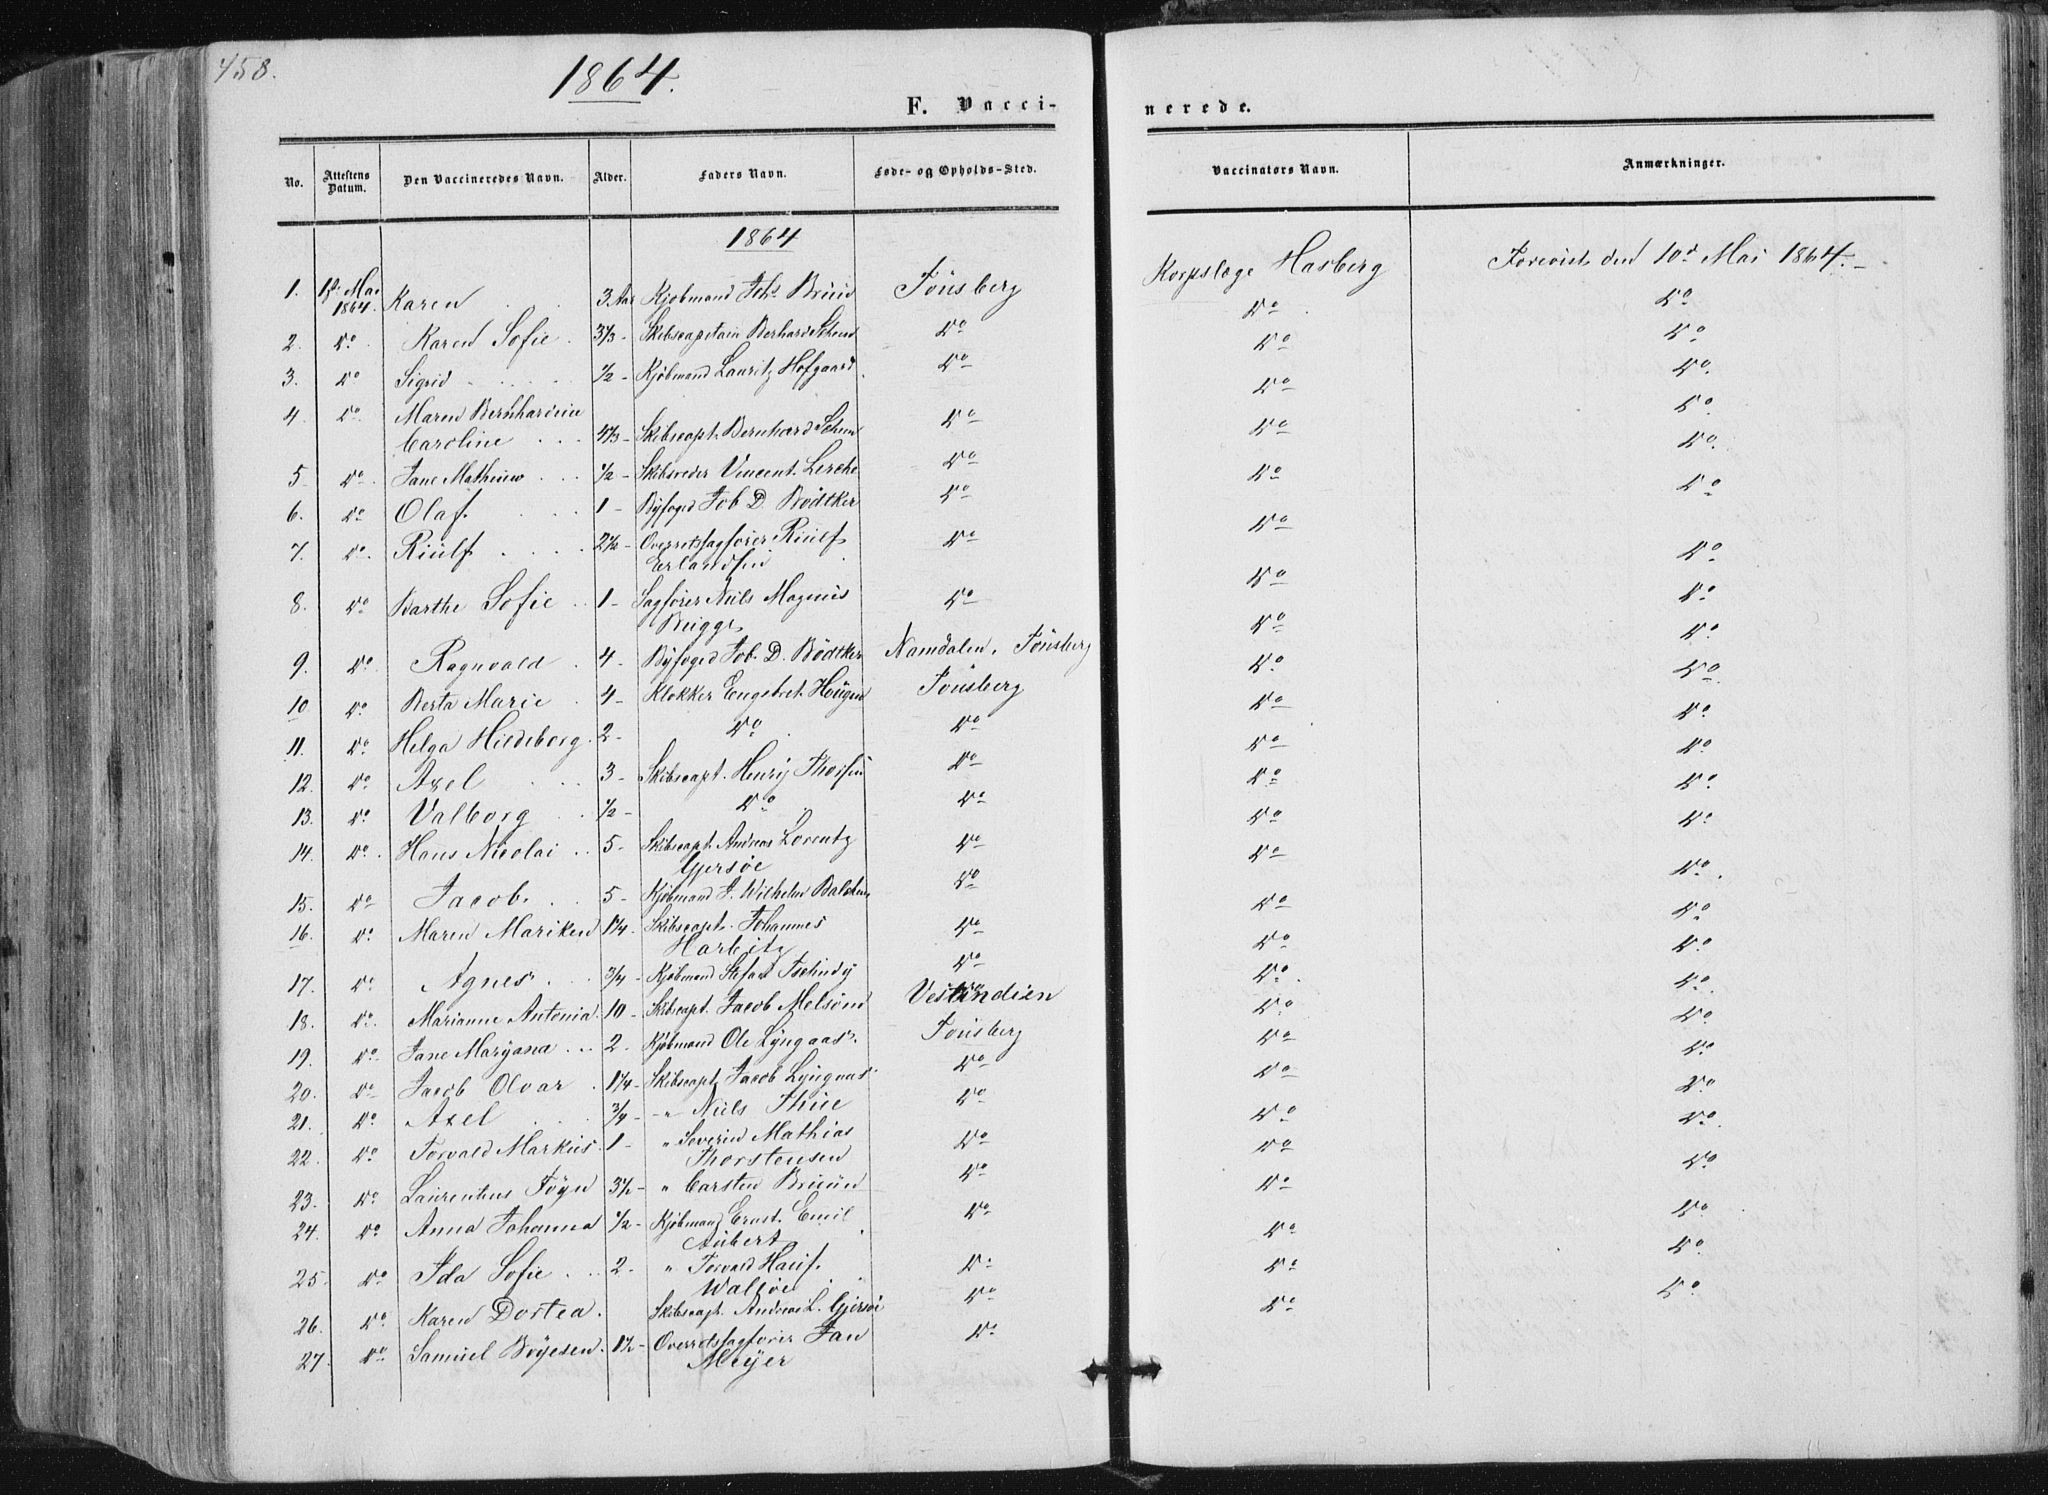 458.
1864.
F. Vacci-
nerede.
No.
Attestens Datum.
Den Vaccineredes Navn.
Alder.
Faders Navn.
Føde- og Opholds-Sted.
Vaccinators Navn.
Anmærkninger.
1864
1. Mai 1864. Karen 3 Aar Kjøbmand Joh. Tønsberg Korpslæge Hasberg Forevist den 10d Mai 1864.
2. do Karen Sofie Skibscapitain do do do
3. do Sigrid 1/2 Kjøbmand Lauritz Hofgaard do do do
4. do Maren Bernhardine
Caroline Skibscapt. Bernhard do do do
5. do Jane 1/2 Skibsreder Vincent Lerche do do do
6. do Olaf. 1 Byfoged Job D. Bødtker do do do
7. do Riulf 2 1/2 Overretssagfører Riulf do do do
Erlandsen
8. do Barthe Sofie 1 Sagfører Niels Magnus do do do
Brigge
9. do Ragnvald 4 Byfoged Job. D. Bødtker Namdalen, Tønsberg do do
10 do Berta Marie 4 Klokker Engebret Hougen Tønsberg do do
11. do Helga Hildeborg 2 do do do do
12. do Axel 3 Skibscapt. Henry do do do
13. do Valborg 1/2 do do do do
14. do Hans Nicolai 5 Skibscapt. Andreas Lorentz do do do
Gjersøe
15. do Jacob 5 Kjøbmand J. Wilhelm do do do
16. do Maren Mariken 1 1/4 Skibscapt. Johannes do do do
Harbitz
17. do Agnes 3/4 Kjøbmand do do do
18. do Marianne Antonia 10 Skibscapt. Jacob Melsom Vestindien do do
19. do Jane Maryana 2 Kjøbmand Ole Lyngaas Tønsberg do do
20. do Jacob Olvar 1 1/4 Skibscapt. Jacob Lyngaas do do do
21. do Axel 3/4 " Niels Thue do do do
22. do Torvald Markus 1 " Severin Mathias do do do
Thorstensen
23. do Laurentius Føyn 3 1/2 " Carsten Bruun do do do
24. do Anna Johanna 1/2 Kjøbmand Ernst Emil do do do
Aubert
25. do Ida Sofie 2 " do do do
Walløe
26. do Karen Dortea Skibscapt. Andreas L. Gjersøe do do do
27. do Samuel Bøyesen 1 1/2 Overretssagfører Jan do
Meyer